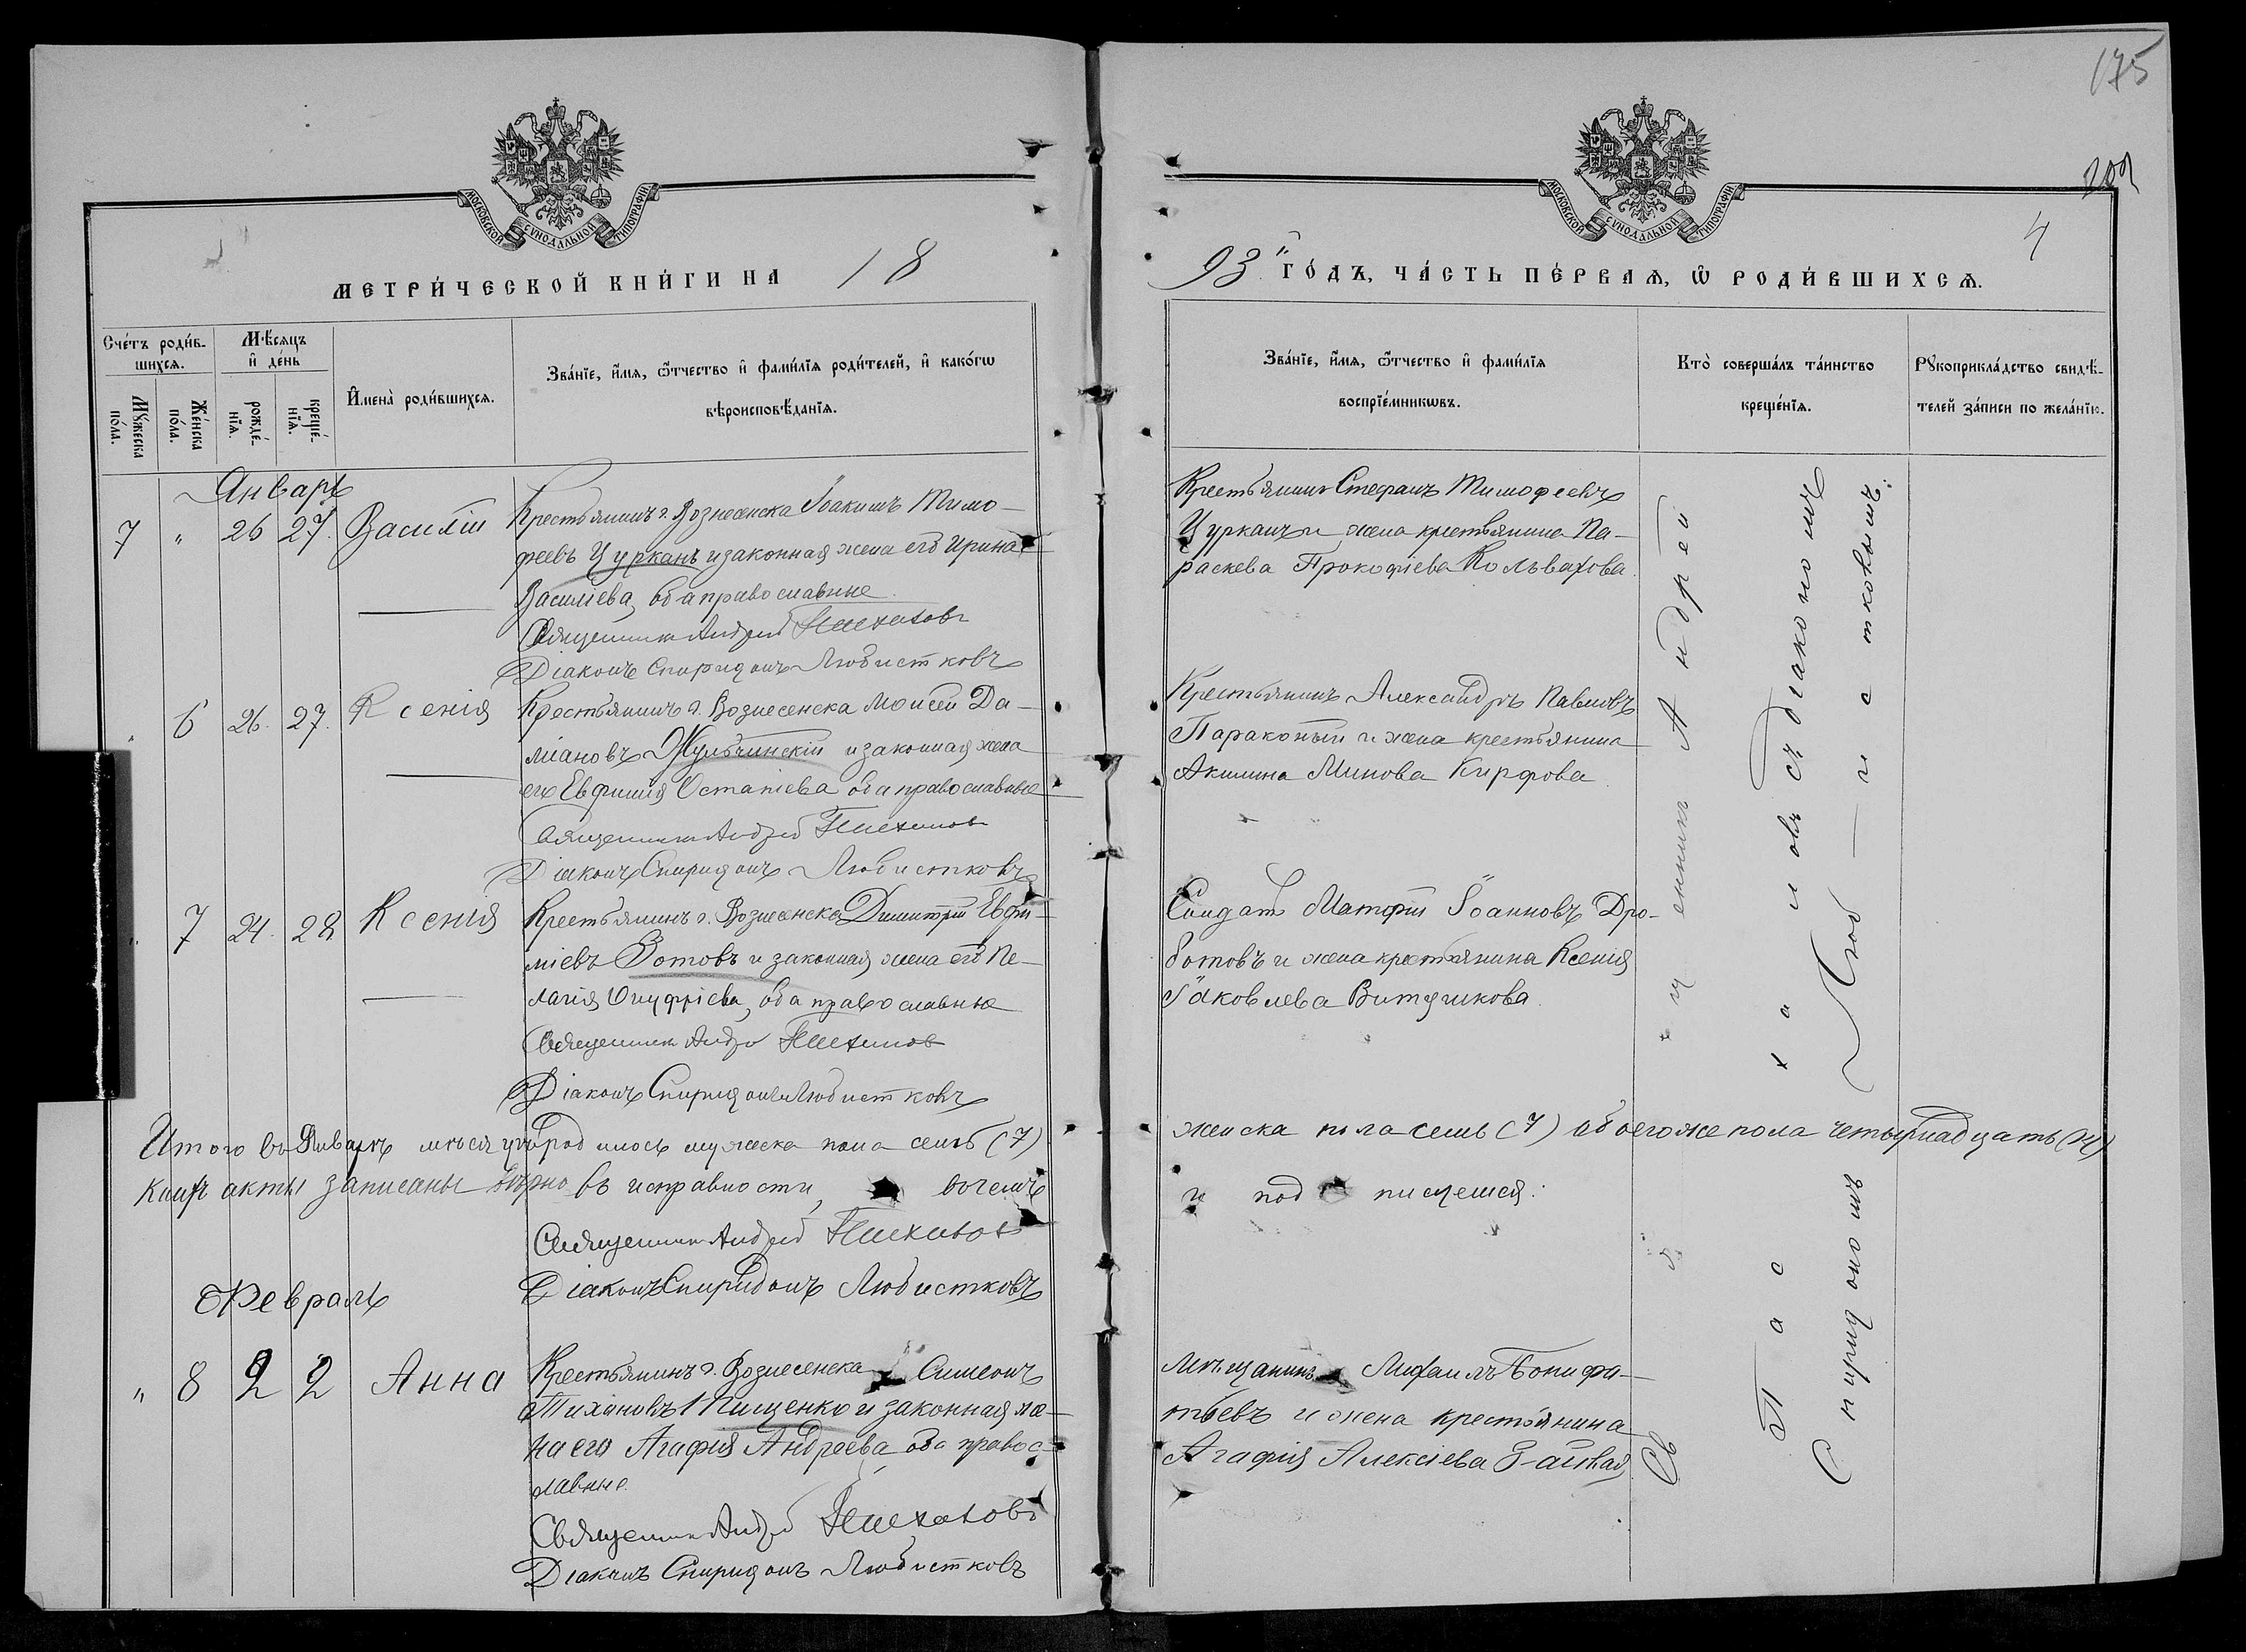 175
201
4
МОСКОВСКОЙ СУНОДАЛЬНОЙ ТИПОГРАФІИ
МОСКОВСКОЙ СУНОДАЛЬНОЙ ТИПОГРАФІИ
МЕТРИ́ЧЕСКОЙ КНИ́ГИ НА 18
93 ГО́ДЪ, ЧА́СТЬ ПЕ́РВАѦ, Ѿ РОДИ́ВШИХСѦ.
Сче́тъ роди́в-
шихся.
Мѣ́сяцъ
и҆ де́нь
Му́жеска
по́ла.
Же́нска
по́ла.
рожде́-
нїѧ.
креще́-
нїѧ.
И҆мена̀ роди́вшихся.
Зва́нїе, и҆́мѧ, ѻ҆́тчество и҆ фами́лїѧ роди́телей, и҆ како́гѡ
вѣроисповѣ́данїѧ.
Зва́нїе, и҆́мѧ, ѻ҆́тчество и҆ фами́лїѧ
воспрїе́мникѡвъ.
Кто̀ соверша́лъ та́инство
креще́нїѧ.
Рꙋкоприкла́дство свидѣ́-
телей за́писи по жела́нїю.
Январь
7 " 26 27. Василій Крестьянинъ г. Вознесенска Іоакимъ Тимо-
феевъ Цурканъ и законная жена его Ирина
Василіева, оба православные.
Священникъ Андрей
Діаконъ Спиридонъ Любистковъ
Крестьянинъ Стефанъ Тимофеевъ
Цурканъ и жена крестьянина Па-
раскева Прокофіева Кольвахова.
" 6 26. 27. Ксенія Крестьянинъ г. Вознесенска Моисей Да-
міановъ Жульчинскій и законная жена
его Евфимія Остапіева оба православные
Священникъ Андрей
Діаконъ Спиридонъ Любистковъ
Крестьянинъ Александръ Павловъ
Параконый и жена крестьянина
Акилина Минова Кирфова
" 7 24. 28. Ксенія Крестьянинъ г. Вознесенска Димитрій Евфи-
міевъ Зотовъ и законная жена его Пе-
лагія Онуфріева, оба православные
Священникъ Андрей
Діаконъ Спиридонъ Любистковъ
Солдатъ Матфій Іоанновъ Дро-
ботовъ и жена крестьянина Ксенія
Іаковлева Витушкова.
Итого въ Январѣ мѣсяцѣ родилось мужеска пола семь (7)
женска пола семь (7) обоего же пола четырнадцать (14)
акты записаны вѣрно въ исправности, въ чемъ
и подписуемся:
Священникъ Андрей
Діаконъ Спиридонъ Любистковъ
Февраль
" 8 2 2 Анна Крестьянинъ г. Вознесенска Симеонъ
Тихоновъ Пищенко и законная же-
на его Агафія Андреева оба правос-
лавные.
Священникъ Андрей
Діаконъ Спиридонъ Любистковъ
Мѣщанинъ Михаилъ Бонифа-
тьевъ и жена крестьянина
Агафія Алексіева
Священникъ Андрей
съ діакономъ
Спиридономъ Люб-истковымъ.